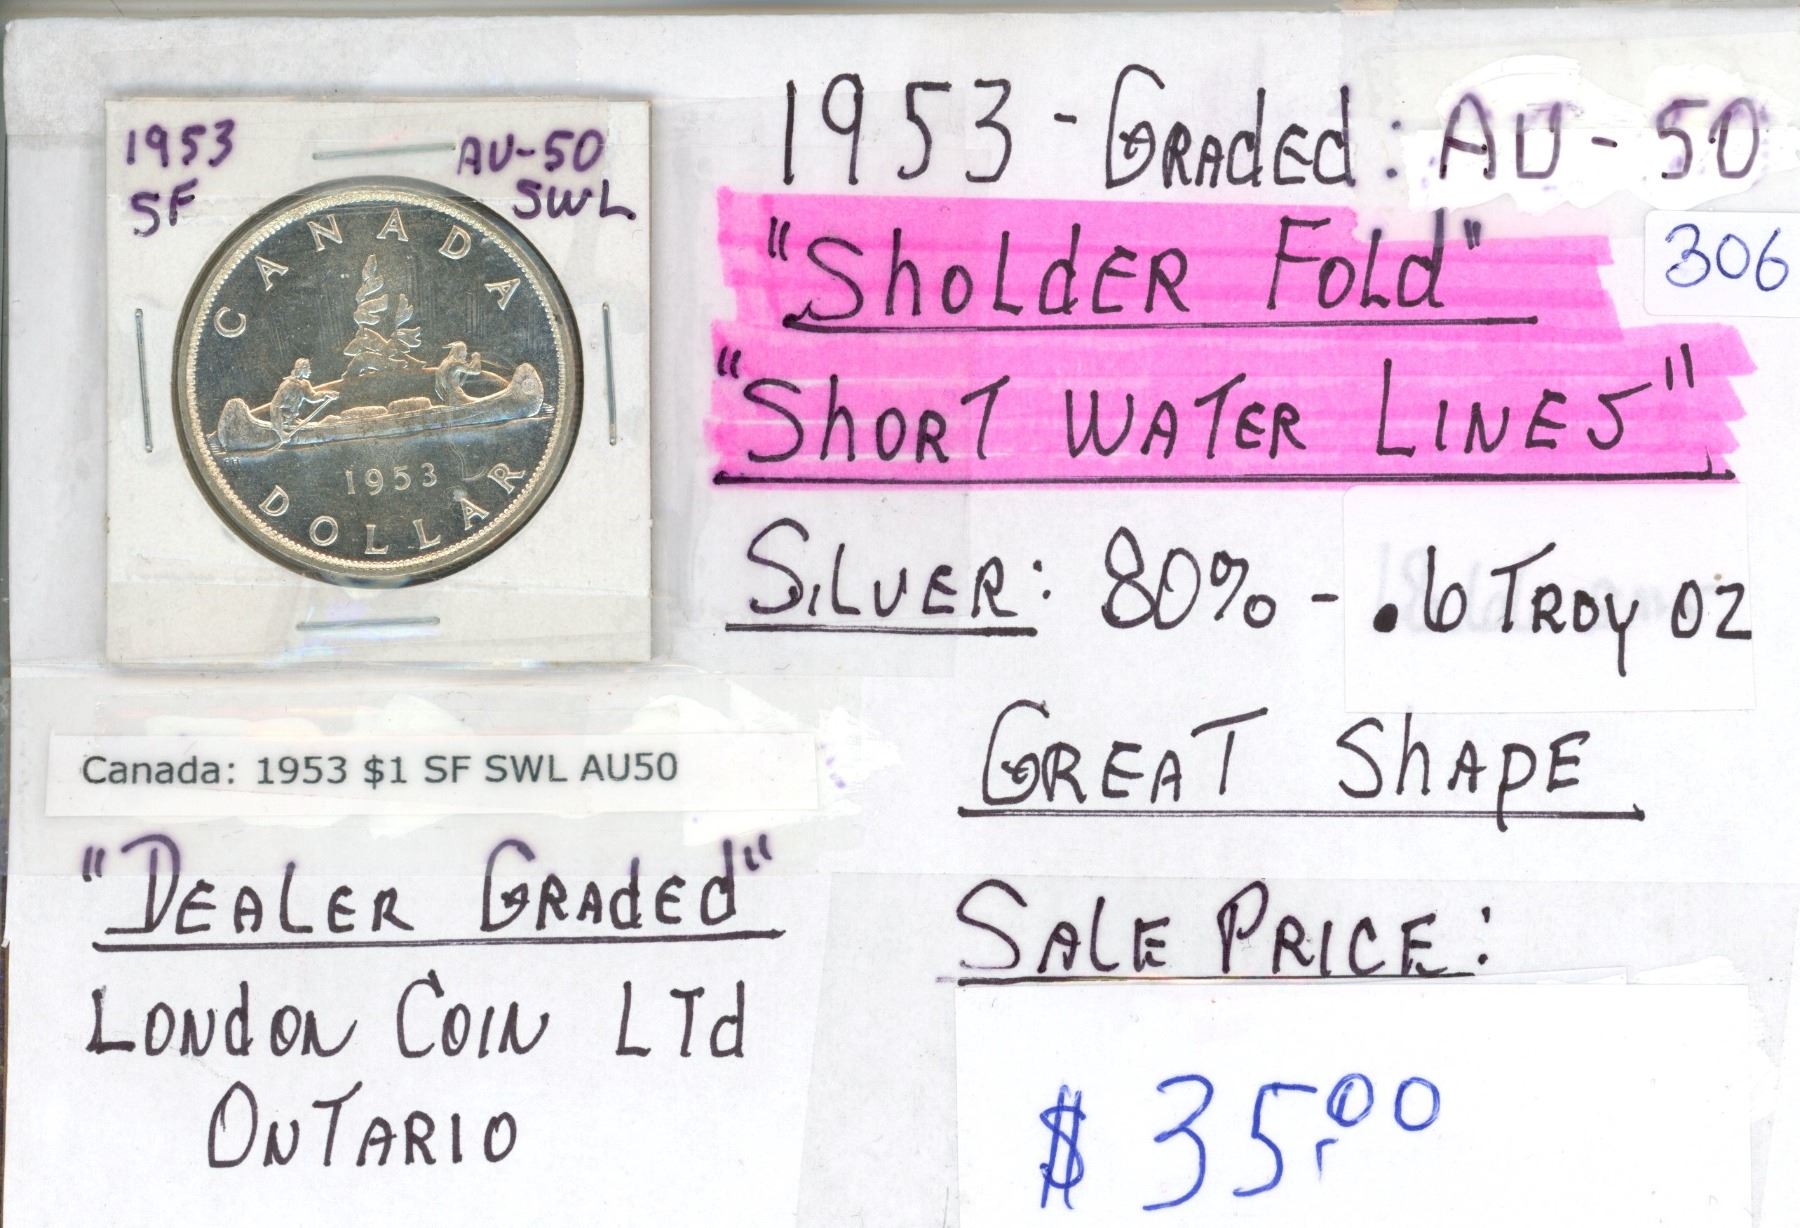 1953
SF
AU-50
SWL
CANADA
1953
DOLLAR
1953 - GRAdEd: AU - 50
"ShoLdER FoLd"
306
"ShoRT WATER LINES"
SiLVER: 80% - .6 TROY OZ
GREAT ShApE
Canada: 1953 $1 SF SWL AU50
"DEALER GRAdEd"
LONdON COIN LTd
ONTARIO
SALE PRICE:
$35.00